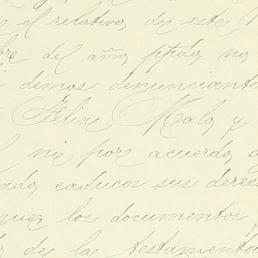 el relativo de este
del año ppdo no
demas denunciante
Felix Mala y
ni por acuerdo
caducos sus derec
los documentos
de la testamento